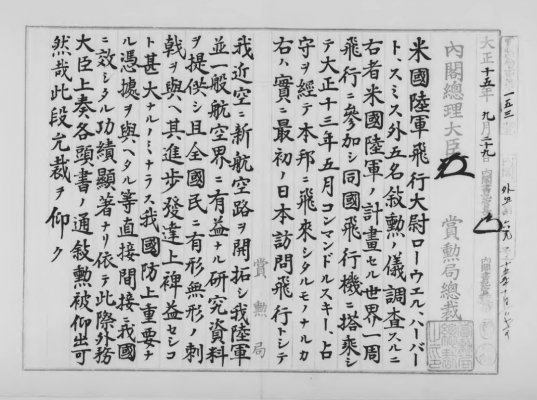 一五三
大正十五年九月二十九日
內閣總理大臣
賞勲局總裁
米國陸軍飛行大尉ローウエル、ハーバー
ト、スミス外五名敍勲ノ儀調査スルニ
右者米國陸軍ノ計畫セル世界一周
飛行ニ參加シ同國飛行機ニ搭乘シ
テ大正十三年五月コマンドルスキー、占
守ヲ經テ本邦ニ飛來シタルモノナルカ
右ハ實ニ最初ノ日本訪問飛行トシテ
賞勲局
我近空ニ新航空路ヲ開拓シ我陸軍
並一般航空界ニ有益ナル硏究資料
ヲ提供シ且全國民ニ有形無形ノ刺
戟ヲ與ヘ其進步發達上裨益セシコ
ト甚大ナルノミナラス我國防上重要ナ
ル憑據ヲ與ヘタル等直接間接ニ我國
ニ效シタル功績顯著ナリ依テ此際外務
大臣上奏各頭書ノ通敍勲被仰出可
然哉此段允裁ヲ仰ク